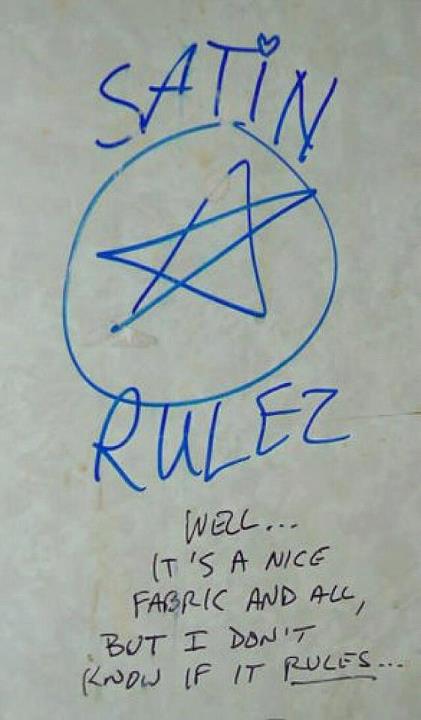 SATiN
RULEZ
WELL...
IT'S A NICE
FABRIC AND ALL,
BUT I DON'T
KNOW IF IT RULES...